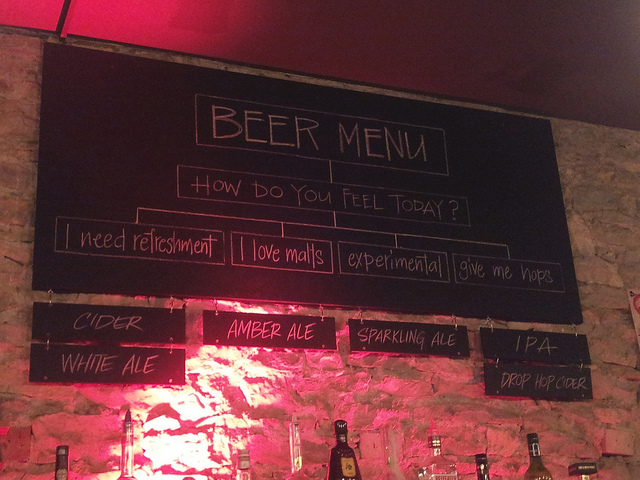 BEER MENU
HOW DO YOU FEEL TODAY?
I need refreshment
I love malts
experimental
give me hops
CIDER
AMBER ALE
SPARKLING ALE
IPA
WHITE ALE
DROP HOP CIDER